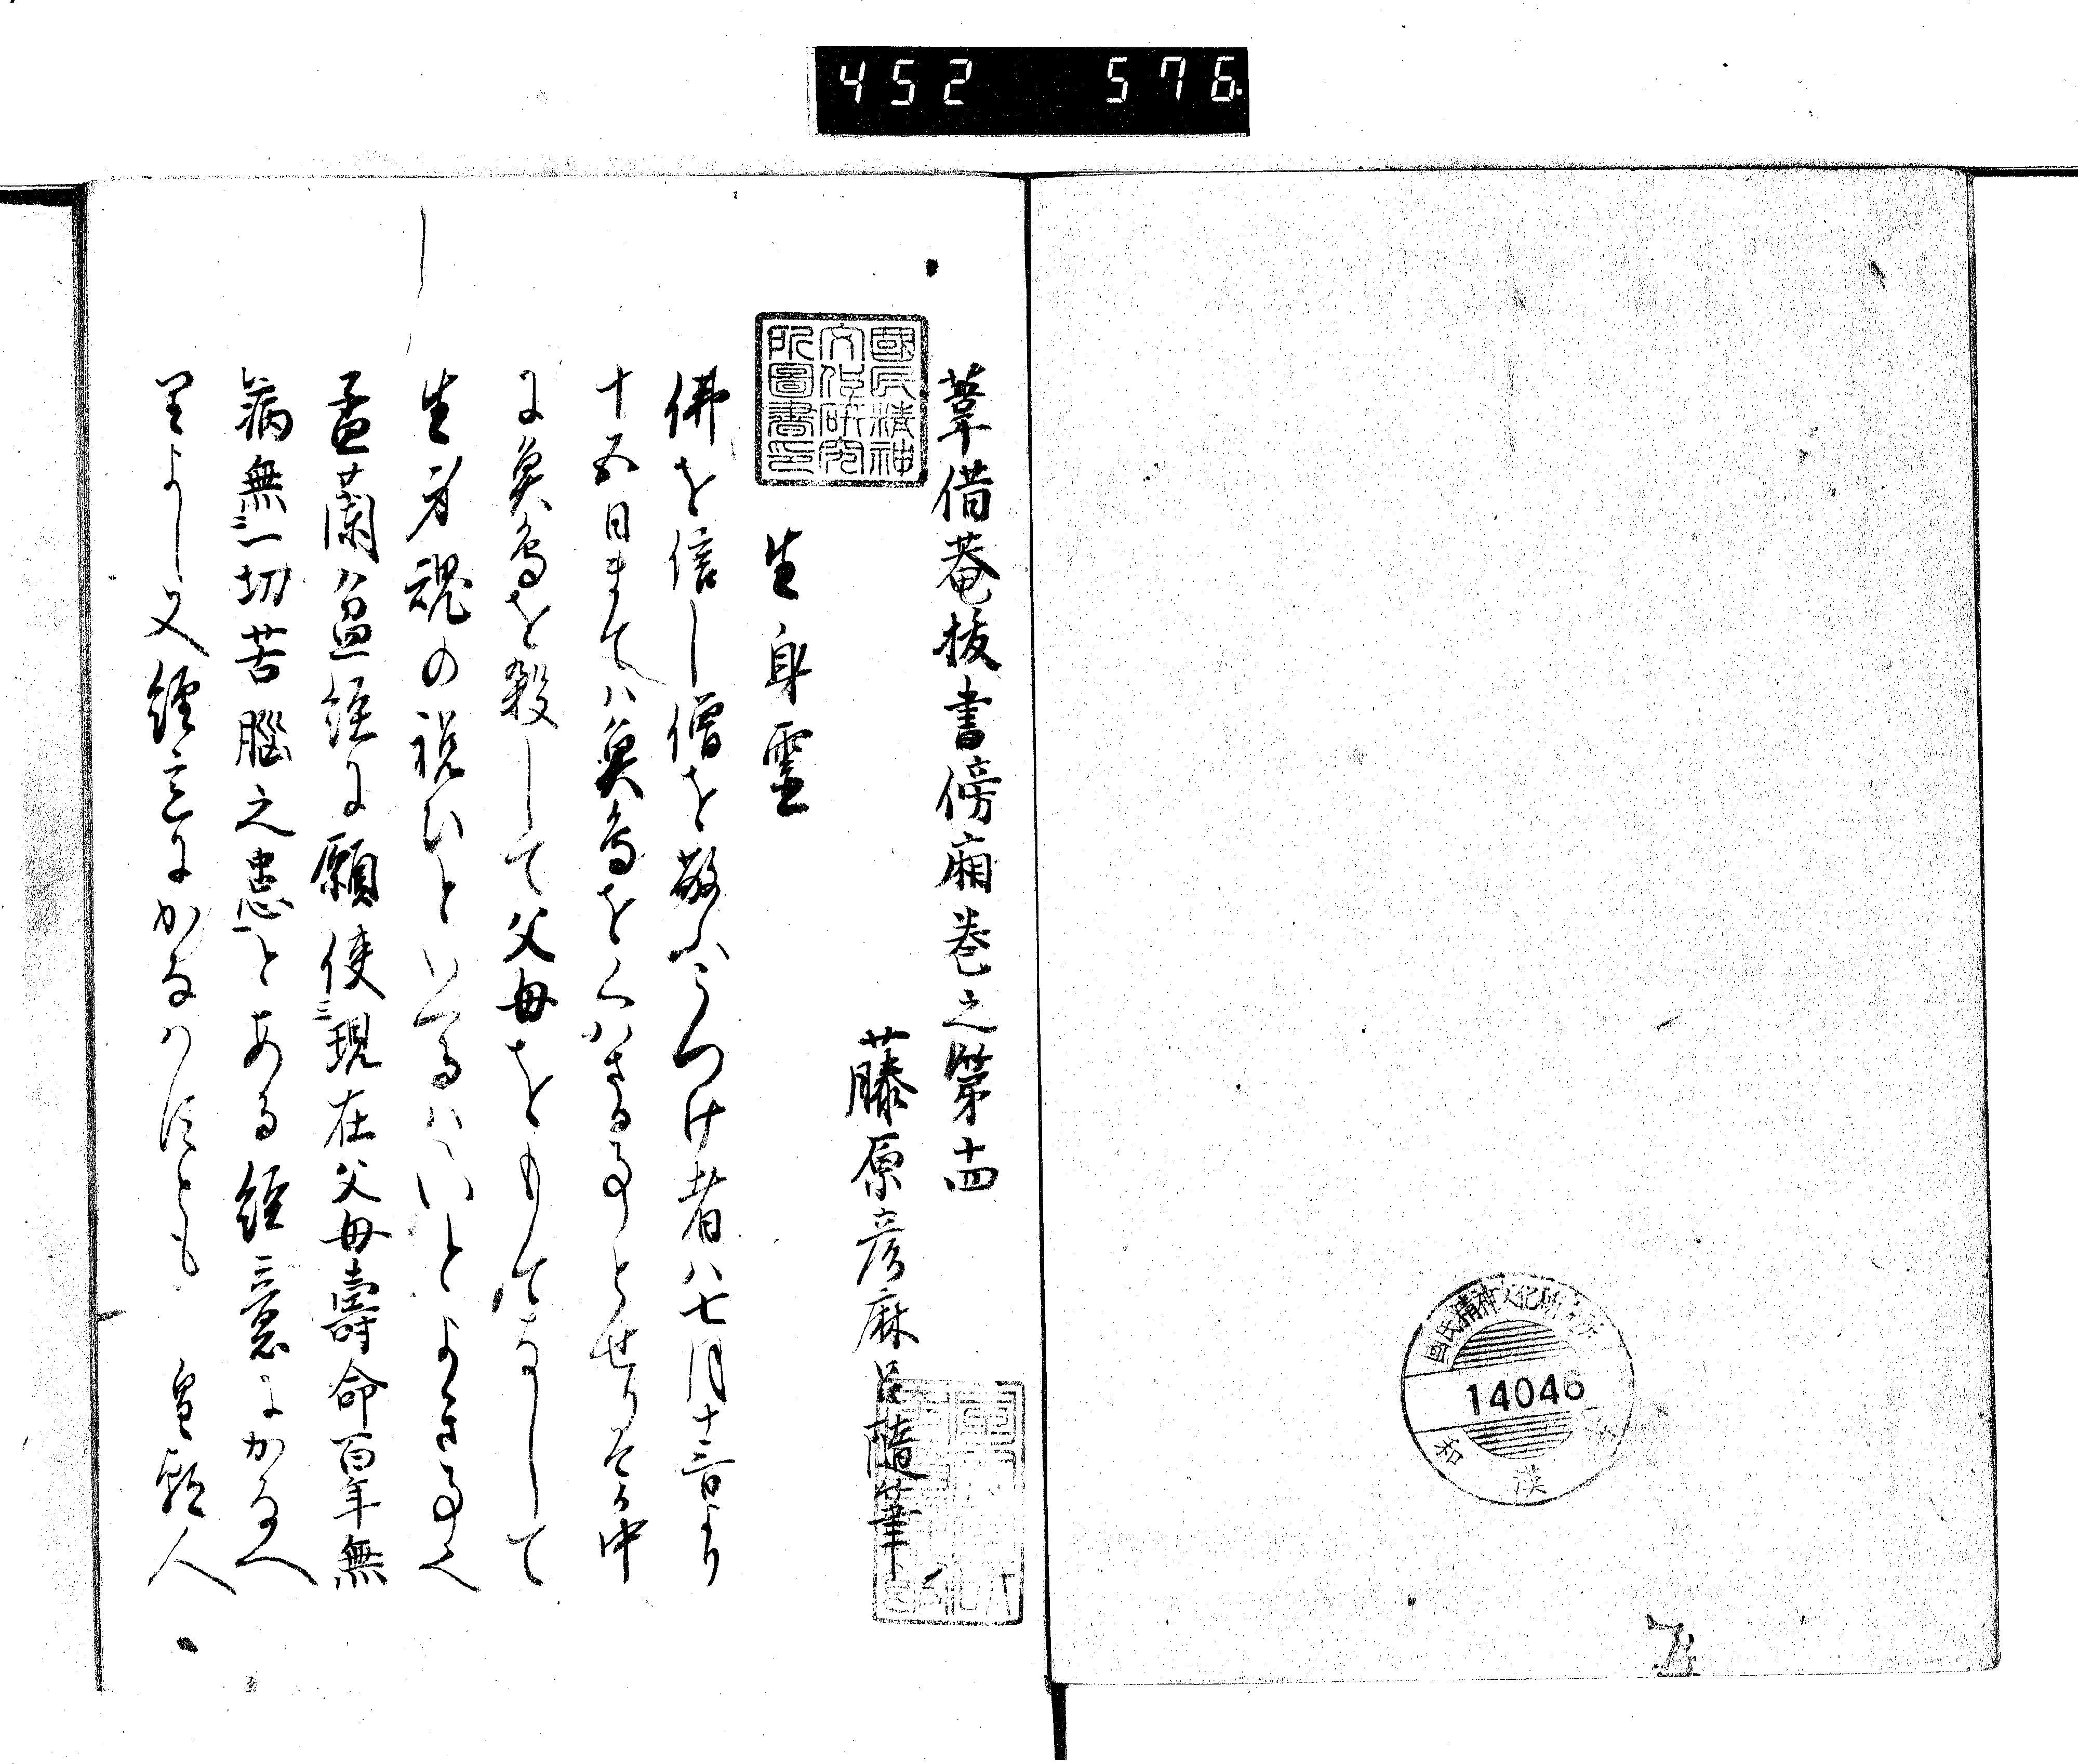 452 576
葦借菴抜書傍廂巻之第十四
藤原彦麻呂隨筆
國民精神文化研究所圖書印
生身靈
佛を信し僧を敬ふうつけ者ハ七月十三日より
十五日まてハ魚鳥をくハさる事とせり其中
に魚鳥を殺して父母をもてなしして
生身魂の祝ひといへるハいとよき事也
盂蘭盆経に願使三現在父母壽命百年無
病無三一切苦腦之患一とある経意にかなへ
りよし又経意にかなハすとも 皇朝人
國民精神文化研究所
14046